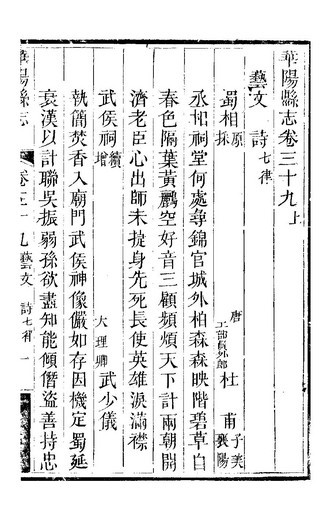 華陽縣志卷三十九上
藝文 詩七律
蜀相原採 唐工部員外郎杜甫子美襄陽
丞相祠堂何處尋錦官城外柏森森映階碧草自
春色隔葉黃鸝空好音三顧頻煩天下計兩朝開
濟老臣心出師未捷身先死長使英雄淚滿襟
武侯祠續增 大理卿武少儀
執簡焚香入廟門武侯神像儼如存因機定蜀延
衰漢以計聯吳振弱孫欲盡知能傾僭盜善持忠
華陽縣志 卷三十九藝文 詩七律 一